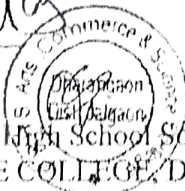 S Arts Commerce & Science
Dharangaon
Dist. Jalgaon
High School So
E COLLEGE, D